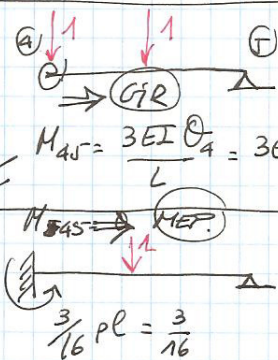 4 1 1
GiR
M45 = 3EI θ4 / L = 3
M45 MEP.
1
3/16 pl = 3/16